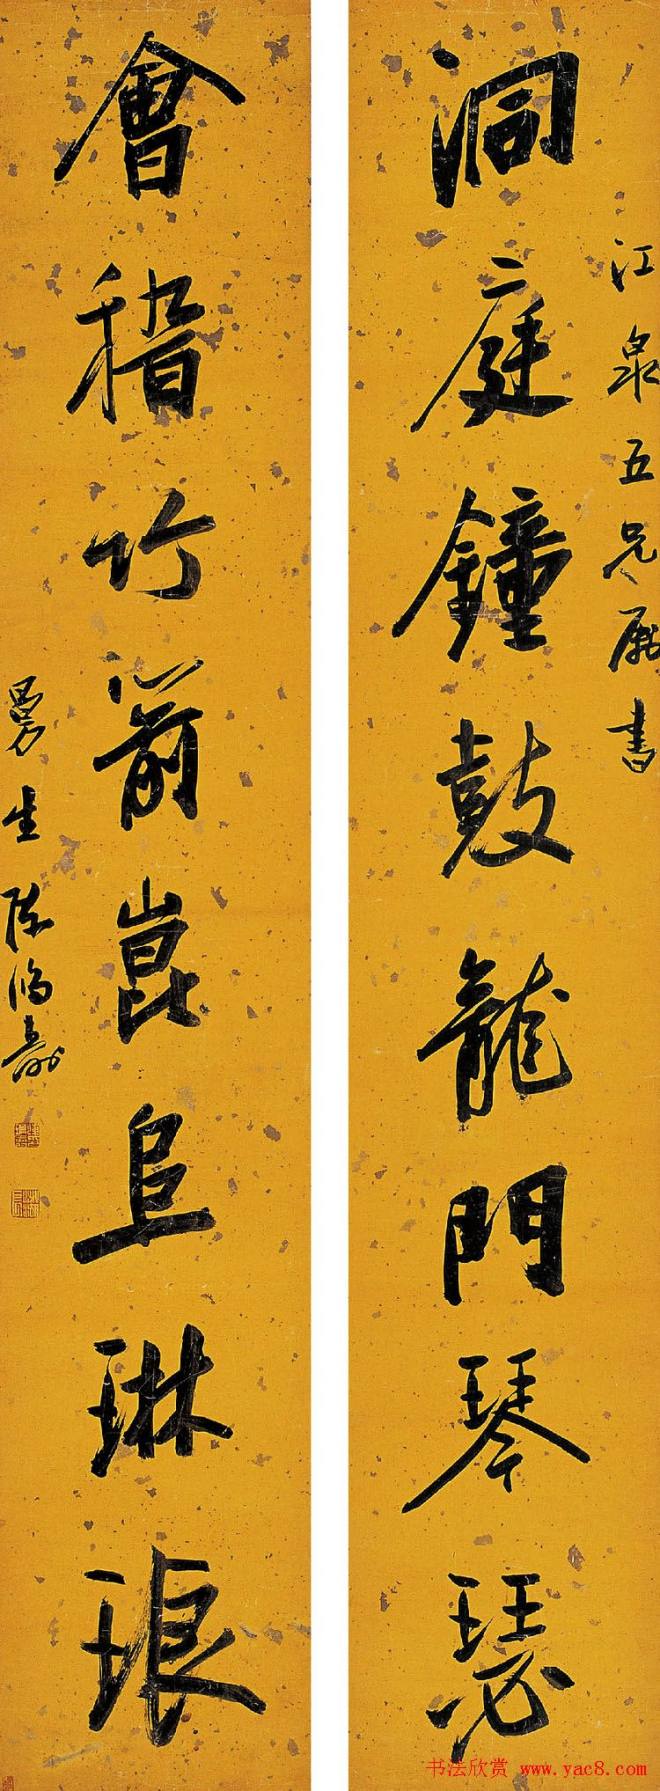 江泉五兄属書
洞庭鐘鼓龍門琴瑟
會稽竹箭崑𠱓琳琅
曼生陳鴻壽
书法欣赏 www.yac8.com